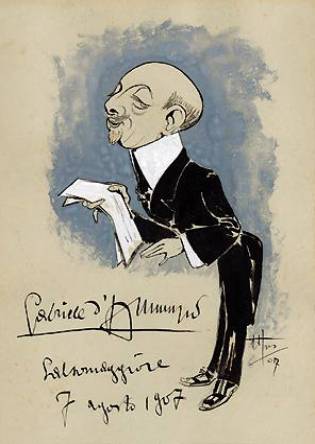 Gabriele d'Annunzio
Salsomaggiore
7 agosto 1907
07